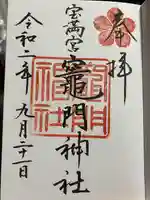 奉拝
宝満宮
竈門神社
令和二年九月二十二日